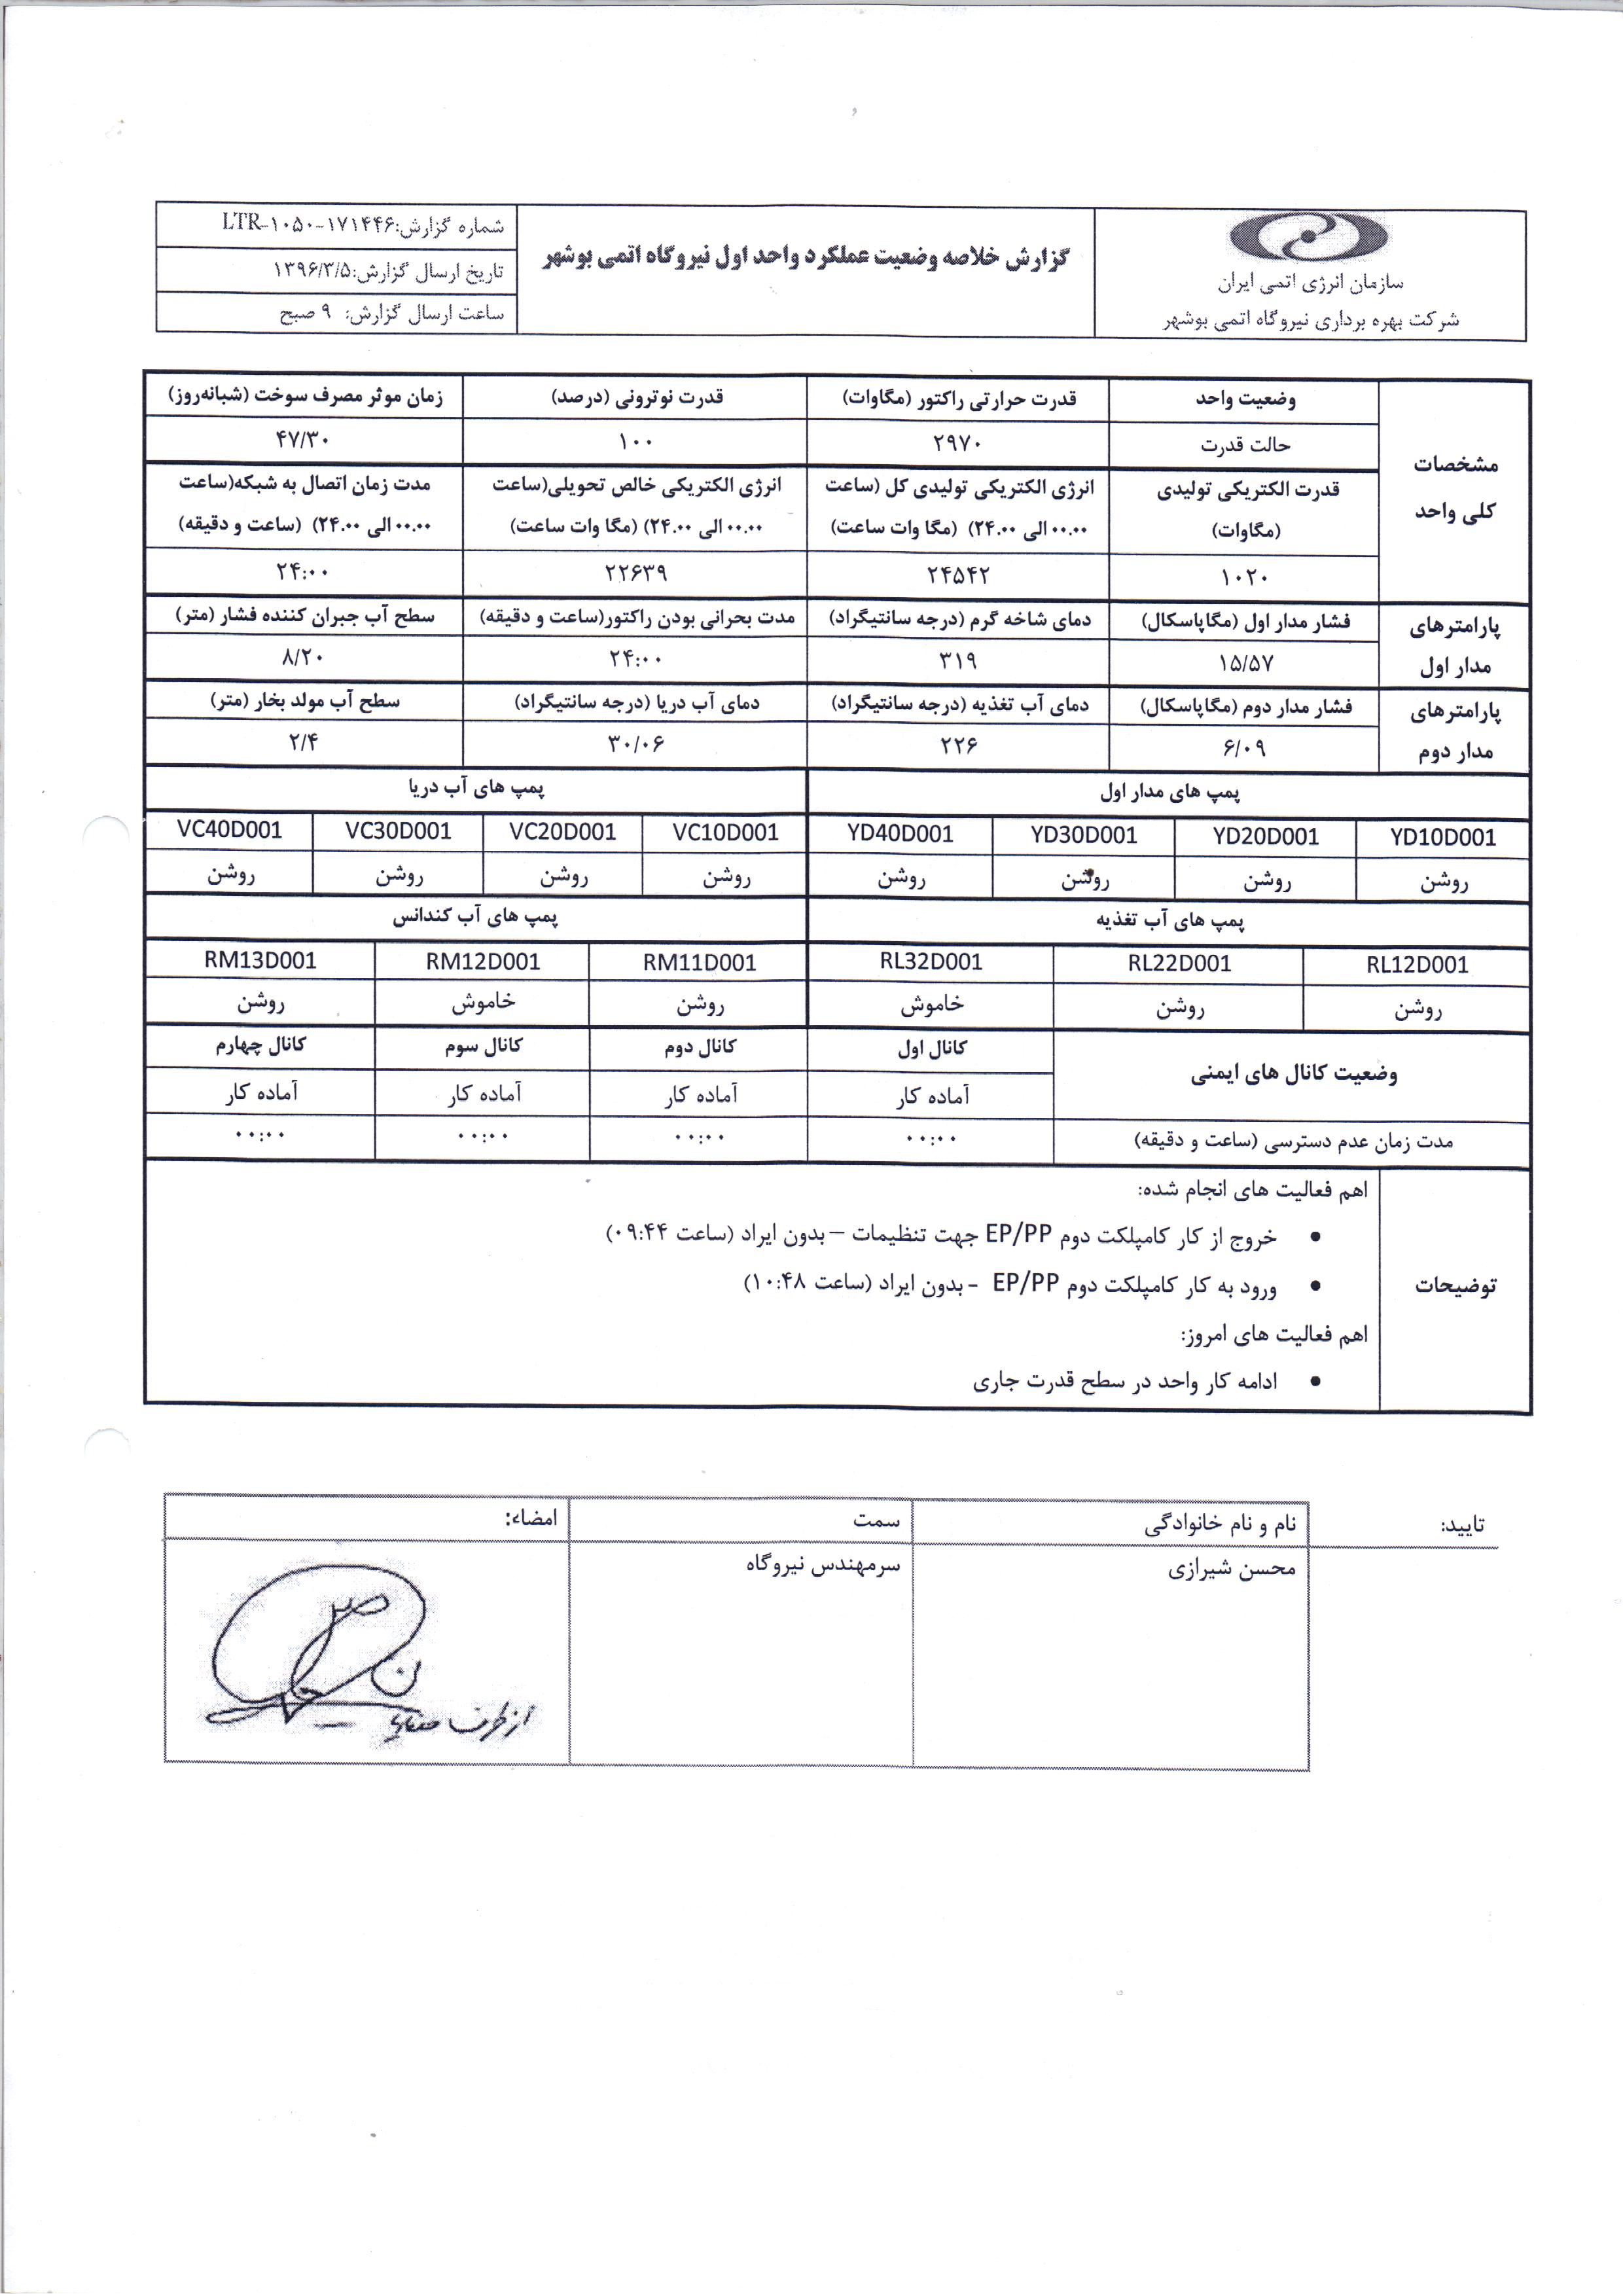 سازمان انرژی اتمی ایران
شرکت بهره برداری نیروگاه اتمی بوشهر
گزارش خلاصه وضعیت عملکرد واحد اول نیروگاه اتمی بوشهر
شماره گزارش:LTR-۱۰۵۰-۱۷۱۴۴۶
تاریخ ارسال گزارش:۱۳۹۶/۳/۵
ساعت ارسال گزارش: ۹ صبح
مشخصات کلی واحد
وضعیت واحد	قدرت حرارتی راکتور (مگاوات)	قدرت نوترونی (درصد)	زمان موثر مصرف سوخت (شبانه‌روز)
حالت قدرت	۲۹۷۰	۱۰۰	۴۷/۳۰
قدرت الکتریکی تولیدی	انرژی الکتریکی تولیدی کل (ساعت	انرژی الکتریکی خالص تحویلی(ساعت	مدت زمان اتصال به شبکه(ساعت
(مگاوات)	۰۰.۰۰ الی ۲۴.۰۰) (مگا وات ساعت)	۰۰.۰۰ الی ۲۴.۰۰) (مگا وات ساعت)	۰۰.۰۰ الی ۲۴.۰۰) (ساعت و دقیقه)
۱۰۲۰	۲۴۵۴۲	۲۲۶۳۹	۲۴:۰۰
پارامترهای مدار اول
فشار مدار اول (مگاپاسکال)	دمای شاخه گرم (درجه سانتیگراد)	مدت بحرانی بودن راکتور(ساعت و دقیقه)	سطح آب جبران کننده فشار (متر)
۱۵/۵۷	۳۱۹	۲۴:۰۰	۸/۲۰
پارامترهای مدار دوم
فشار مدار دوم (مگاپاسکال)	دمای آب تغذیه (درجه سانتیگراد)	دمای آب دریا (درجه سانتیگراد)	سطح آب مولد بخار (متر)
۶/۰۹	۲۲۶	۳۰/۰۶	۲/۴
پمپ های مدار اول	پمپ های آب دریا
YD10D001	YD20D001	YD30D001	YD40D001	VC10D001	VC20D001	VC30D001	VC40D001
روشن	روشن	روشن	روشن	روشن	روشن	روشن	روشن
پمپ های آب تغذیه	پمپ های آب کندانس
RL12D001	RL22D001	RL32D001	RM11D001	RM12D001	RM13D001
روشن	روشن	خاموش	روشن	خاموش	روشن
وضعیت کانال های ایمنی	کانال اول	کانال دوم	کانال سوم	کانال چهارم
آماده کار	آماده کار	آماده کار	آماده کار
مدت زمان عدم دسترسی (ساعت و دقیقه)	۰۰:۰۰	۰۰:۰۰	۰۰:۰۰	۰۰:۰۰
توضیحات
اهم فعالیت های انجام شده:
• خروج از کار کامپلکت دوم EP/PP جهت تنظیمات – بدون ایراد (ساعت ۰۹:۴۴)
• ورود به کار کامپلکت دوم EP/PP - بدون ایراد (ساعت ۱۰:۴۸)
اهم فعالیت های امروز:
• ادامه کار واحد در سطح قدرت جاری
تایید:	نام و نام خانوادگی	سمت	امضاء:
محسن شیرازی	سرمهندس نیروگاه
از طرف